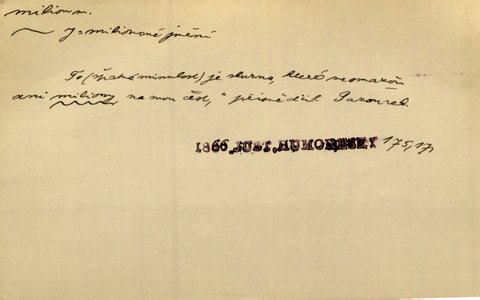 milion m.
~ J = milionové jmění
To (špatná minulost) je skvrna, které nesmažou
ani miliony na mou čest, “ přisvědčil Pazourek.
1866. JUST. HUMORESKY 175, 17